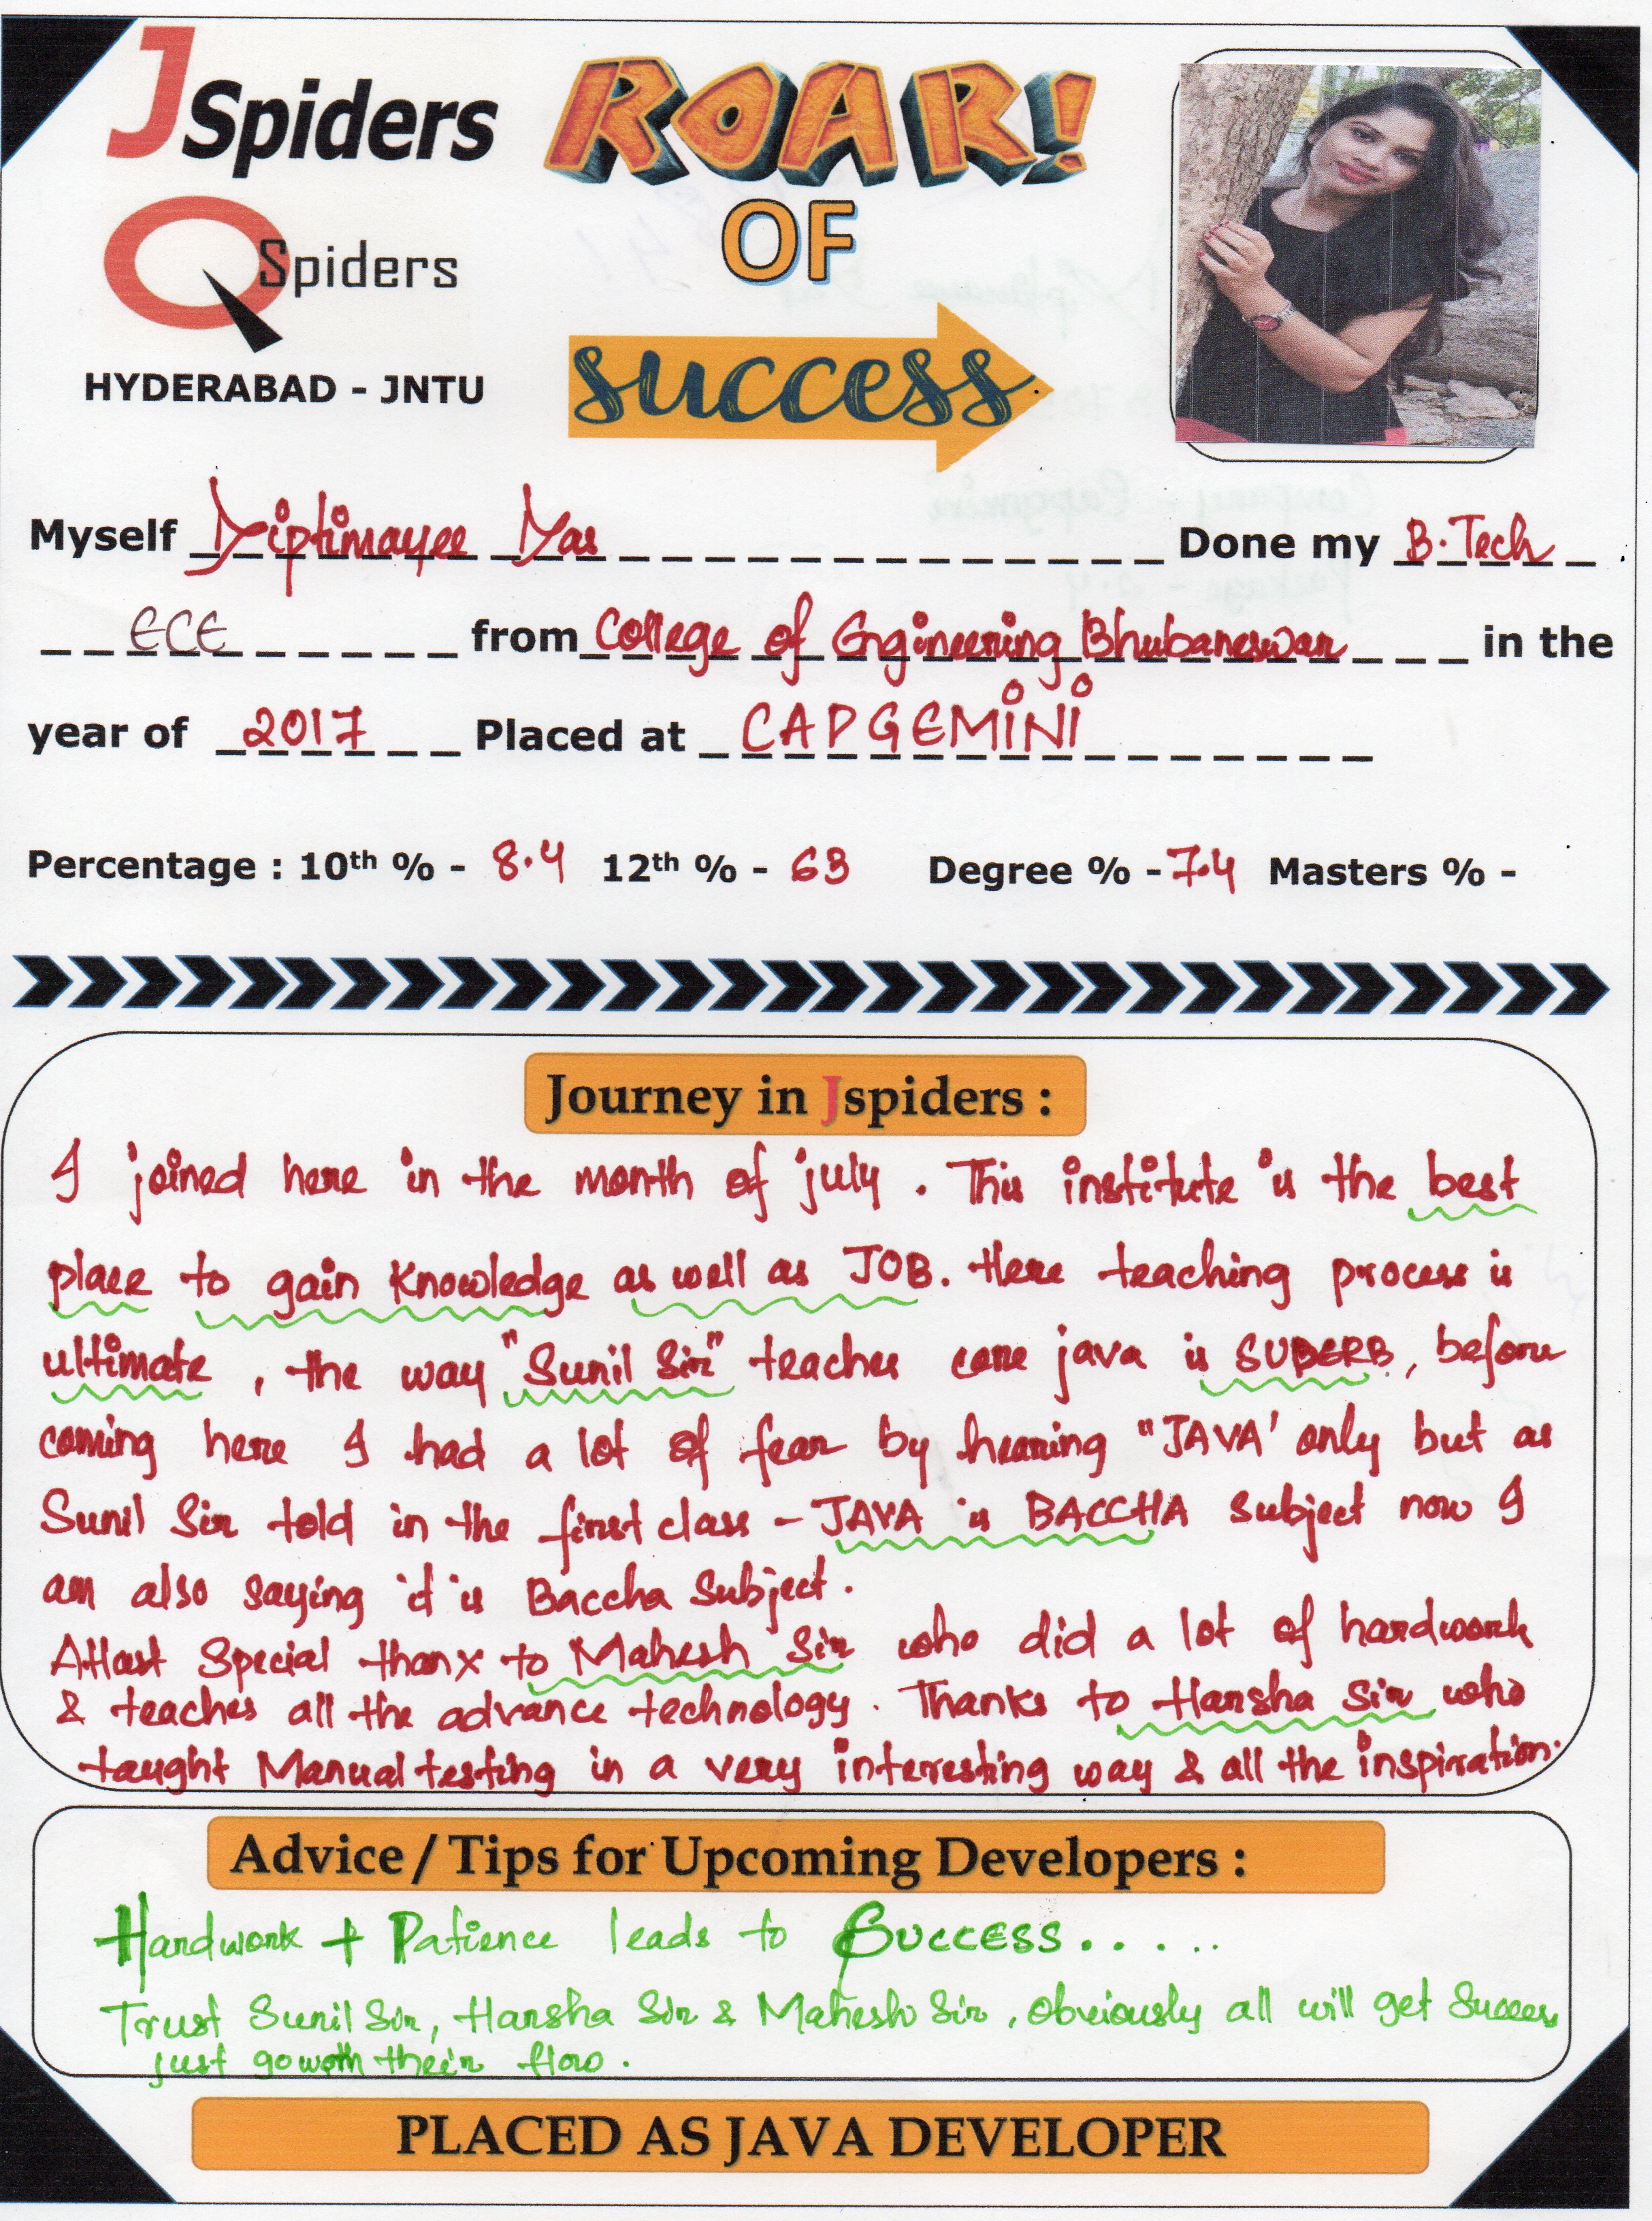 JSpiders
QSpiders
HYDERABAD - JNTU
ROAR!
OF
success
Myself Diptimayee Das Done my B.Tech
ECE from College of Engineering Bhubaneswar in the
year of 2017 Placed at CAPGEMINI
Percentage : 10th % - 8.4 12th % - 63 Degree % - 7.4 Masters % -
Journey in Jspiders :
I joined here in the month of july . This institute is the best
place to gain knowledge as well as JOB. Here teaching process is
ultimate , the way "Sunil Sir" teaches core java is SUBERB, before
coming here I had a lot of fear by hearing "JAVA' only but as
Sunil Sir told in the first class - JAVA is BACCHA Subject now I
am also saying it is Baccha Subject .
Atlast Special thanx to Mahesh Sir who did a lot of hardwork
& teaches all the advance technology . Thanks to Harsha Sir who
taught Manual testing in a very interesting way & all the inspiration.
Advice / Tips for Upcoming Developers :
Hardwork + Patience leads to SUCCESS . . . . .
Trust Sunil Sir, Harsha Sir & Mahesh Sir , Obviously all will get Success
just go with their flow .
PLACED AS JAVA DEVELOPER